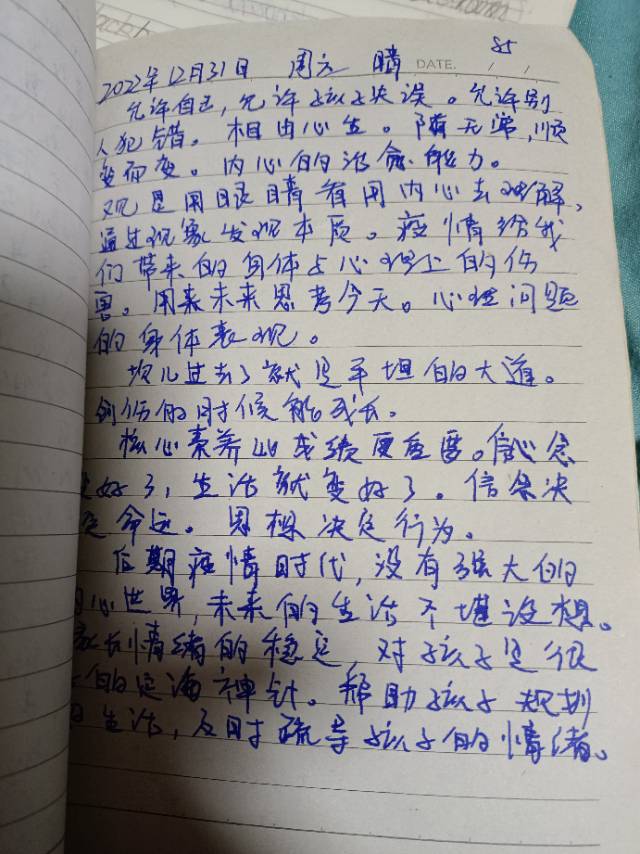 85
2022年12月31日 周六 晴 DATE. / /
允许自己,允许孩子失误。允许别
人犯错。相由心生。随无常,顺
变而变。内心的治愈能力。
观是用眼睛看用内心去理解,
通过现象发现本质。疫情给我
们带来的身体与心理上的伤
害。用未来思考今天。心理问题
的身体表现。
坎儿过去了就是平坦的大道。
创伤的时候能成长。
核心素养比成绩更重要。信心念
变好了,生活就变好了。信念决
定命运。思想决定行为。
后期疫情时代,没有强大的
内心世界,未来的生活不堪设想。
家长情绪的稳定,对孩子是很
大的定海神针。帮助孩子规划
生活,及时疏导孩子的情绪。